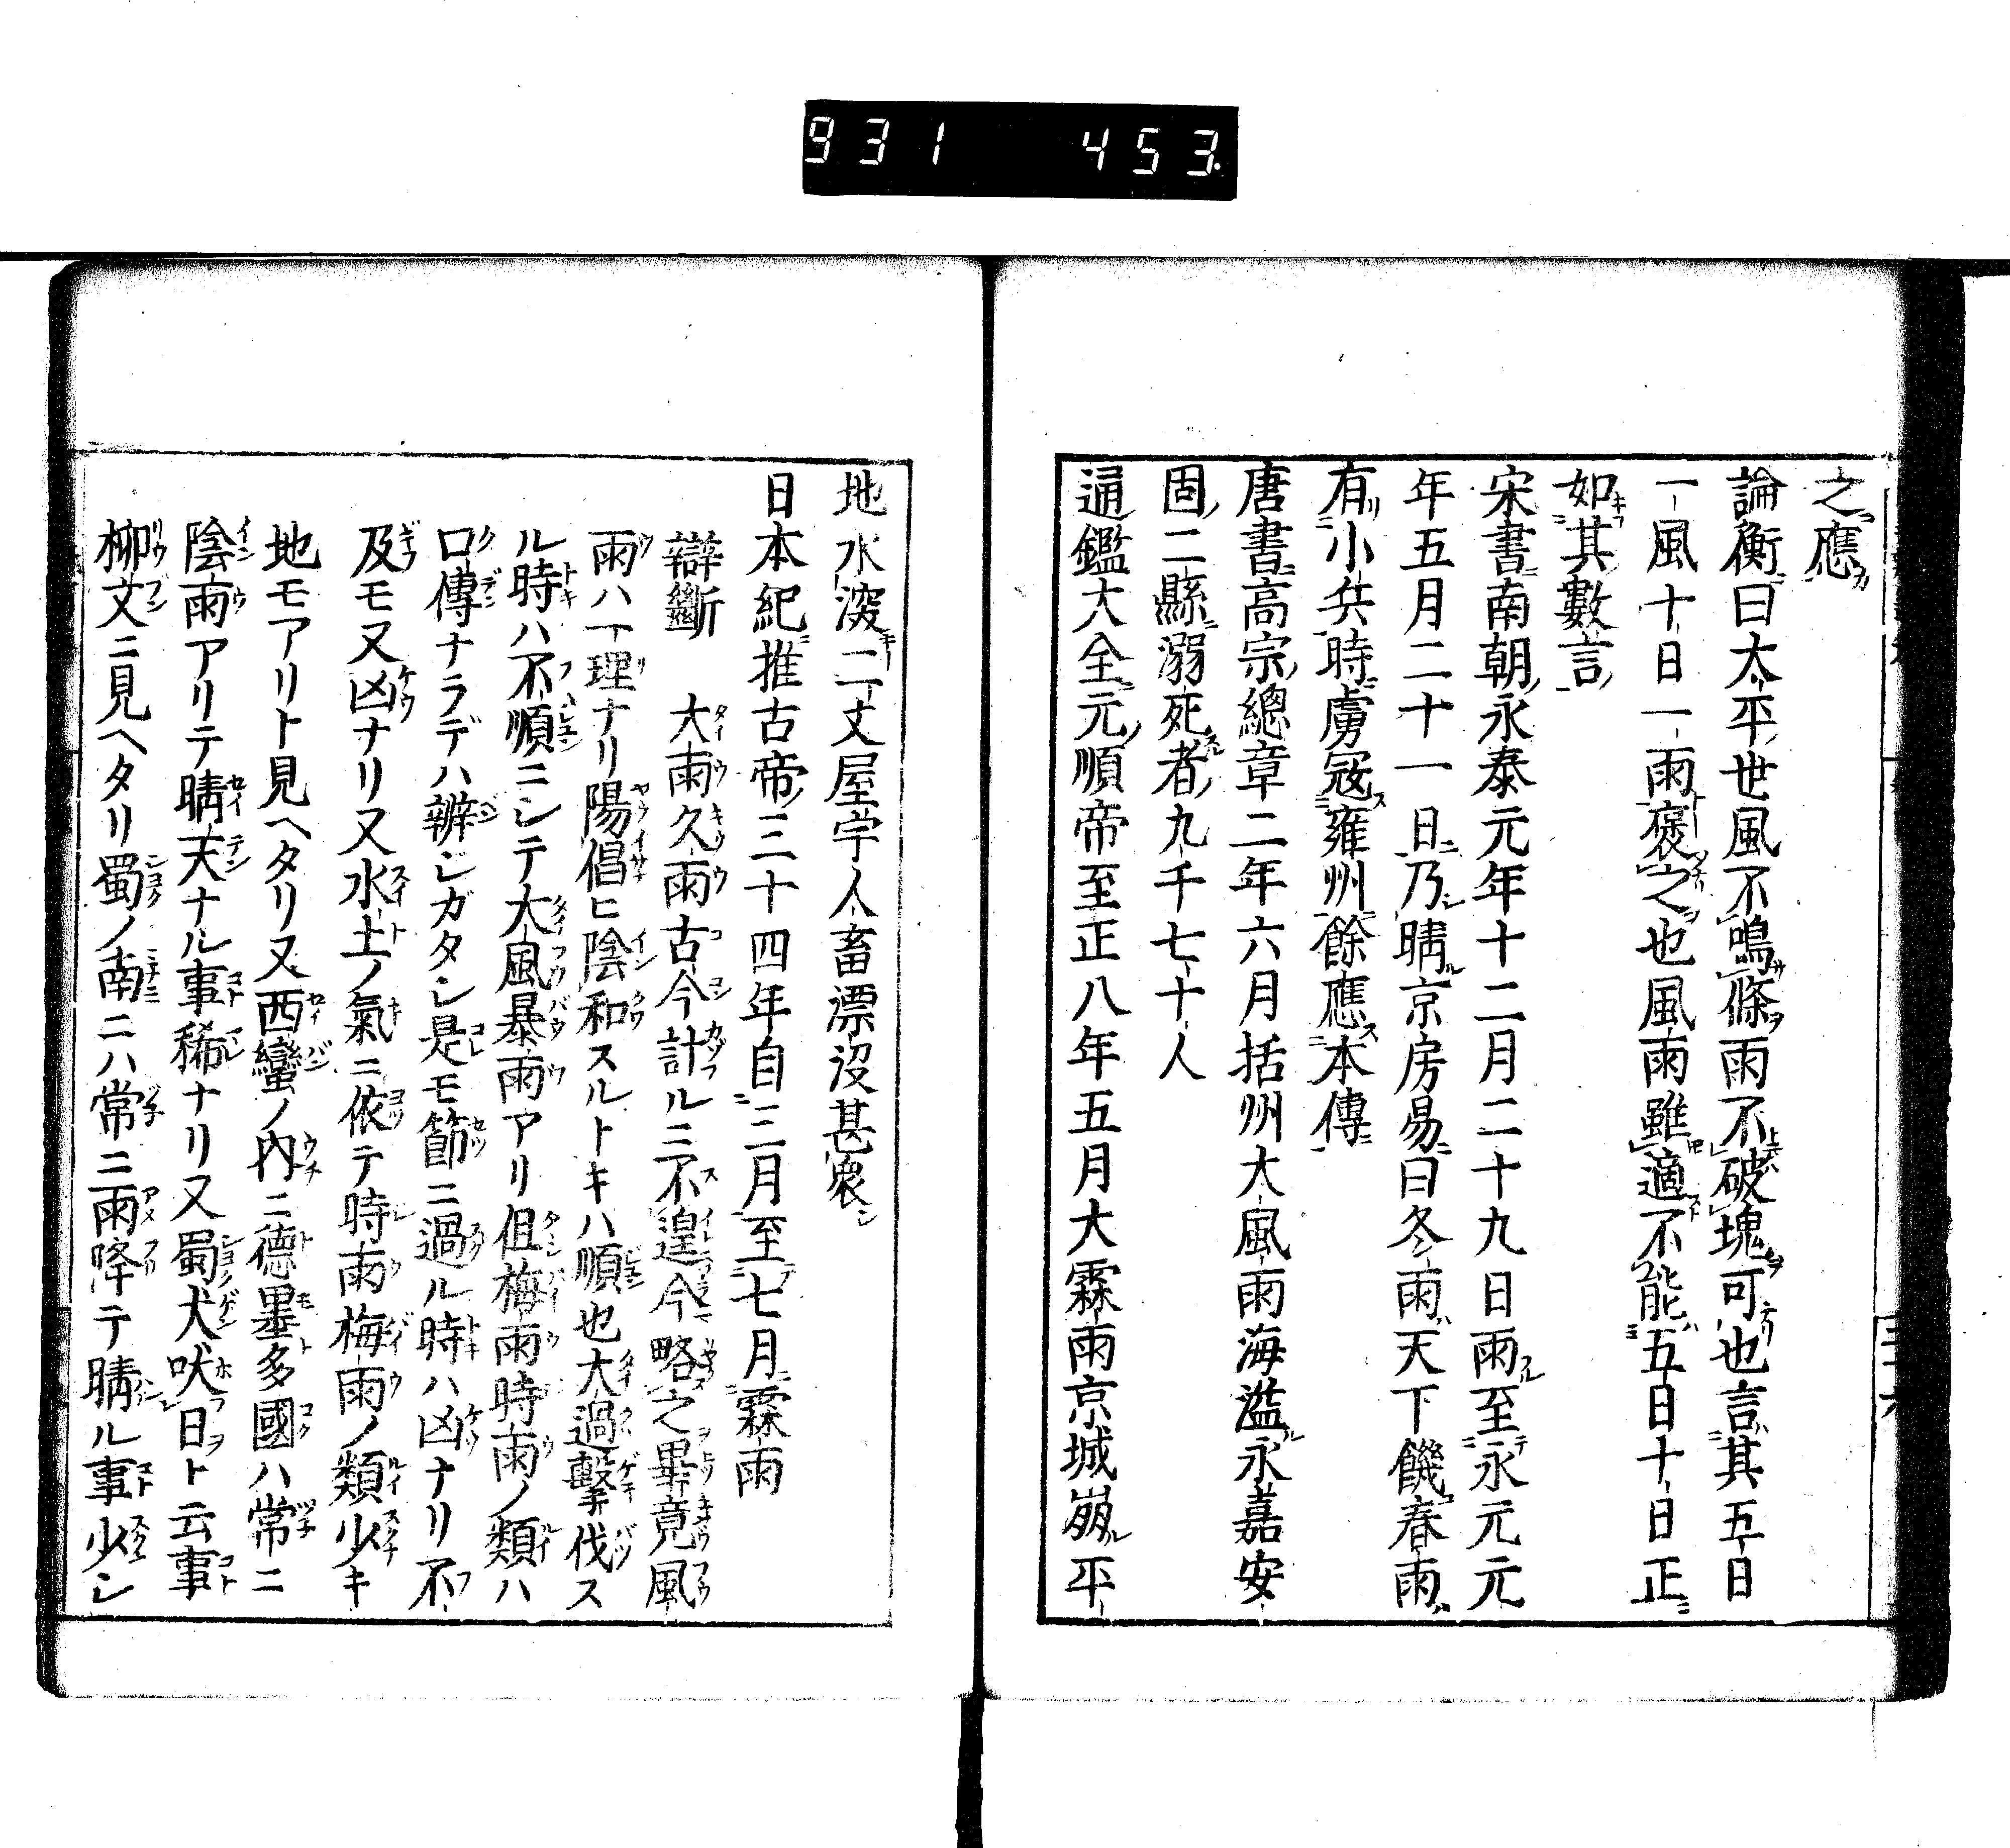 931 453
之應
論衡曰太平世風不鳴條雨不破塊可也言其五日
一風十日一雨褒之也風雨雖適不能五日十日正
如其數言
宋書南朝永泰元年十二月二十九日雨至永元元
年五月二十一日乃晴京房易曰冬雨天下饑春雨
有小兵時虜寇雍州餘應本傳
唐書高宗總章二年六月括州大風雨海溢永嘉安
固二縣溺死者九千七十人
通鑑大全元順帝至正八年五月大霖雨京城崩平
地水深二丈屋宇人畜漂沒甚衆
日本紀推古帝三十四年自三月至七月霖雨
辯斷 大雨久雨古今計ルニ不遑今略之畢竟風
雨ハ一理ナリ陽倡ヒ陰和スルトキハ順也大過擊伐ス
ル時ハ不順ニシテ大風暴雨アリ但梅雨時雨ノ類ハ
口傳ナラデハ辨シガタシ是モ節ニ過ル時ハ凶ナリ不
及モ又凶ナリ又水土ノ氣ニ依テ時雨梅雨ノ類少キ
地モアリト見ヘタリ又西蠻ノ內ニ德墨多國ハ常ニ
陰雨アリテ晴天ナル事稀ナリ又蜀犬吠日ト云事
柳文ニ見ヘタリ蜀ノ南ニハ常ニ雨降テ晴ル事少シ